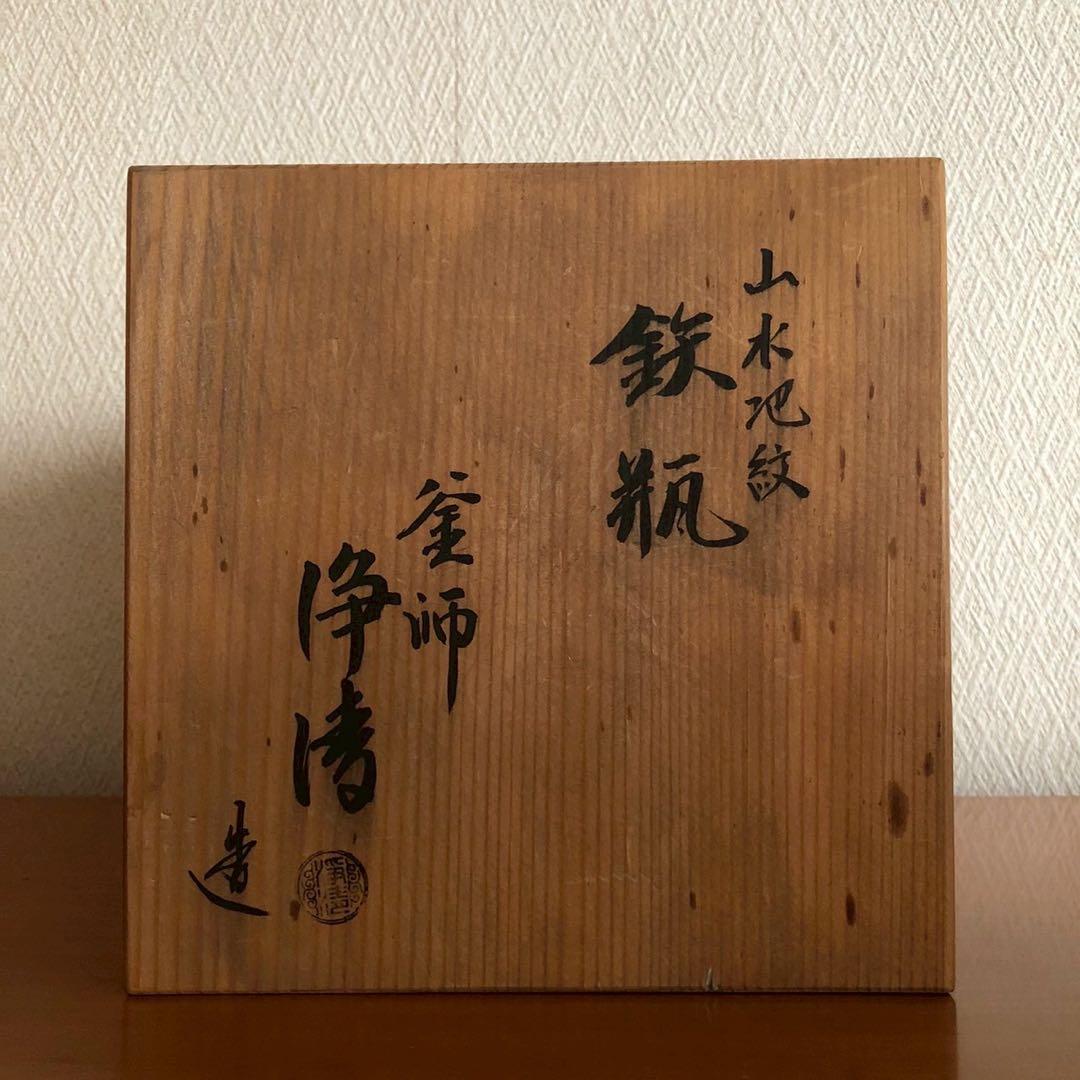 山水地紋
鉄瓶
釜師
浄清
造